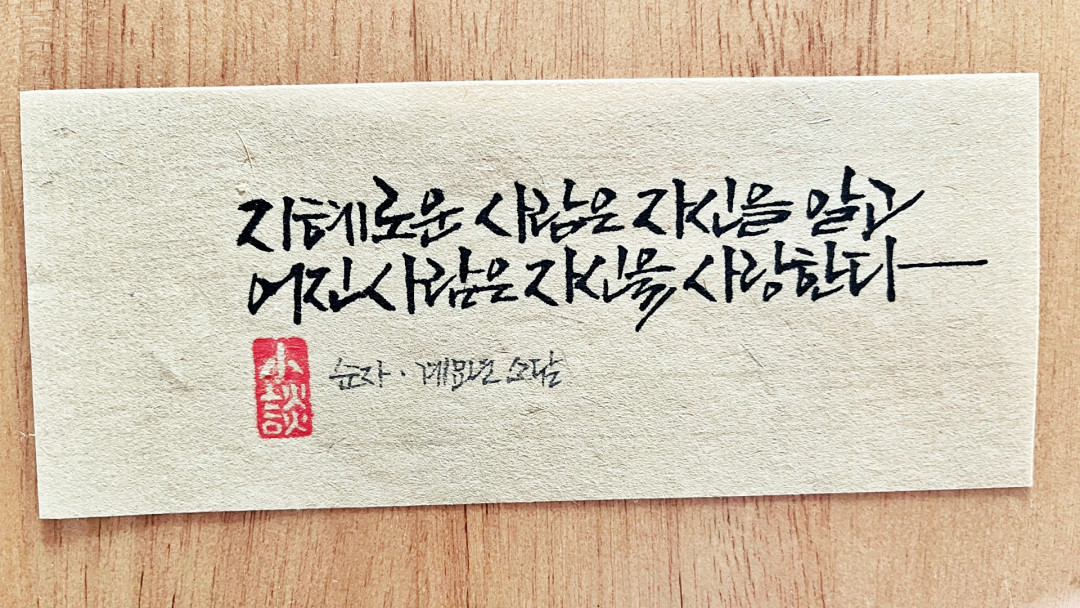 지혜로운 사람은 자신을 알고
어진 사람은 자신을 사랑한다
小談
순자 · 계묘년 소담